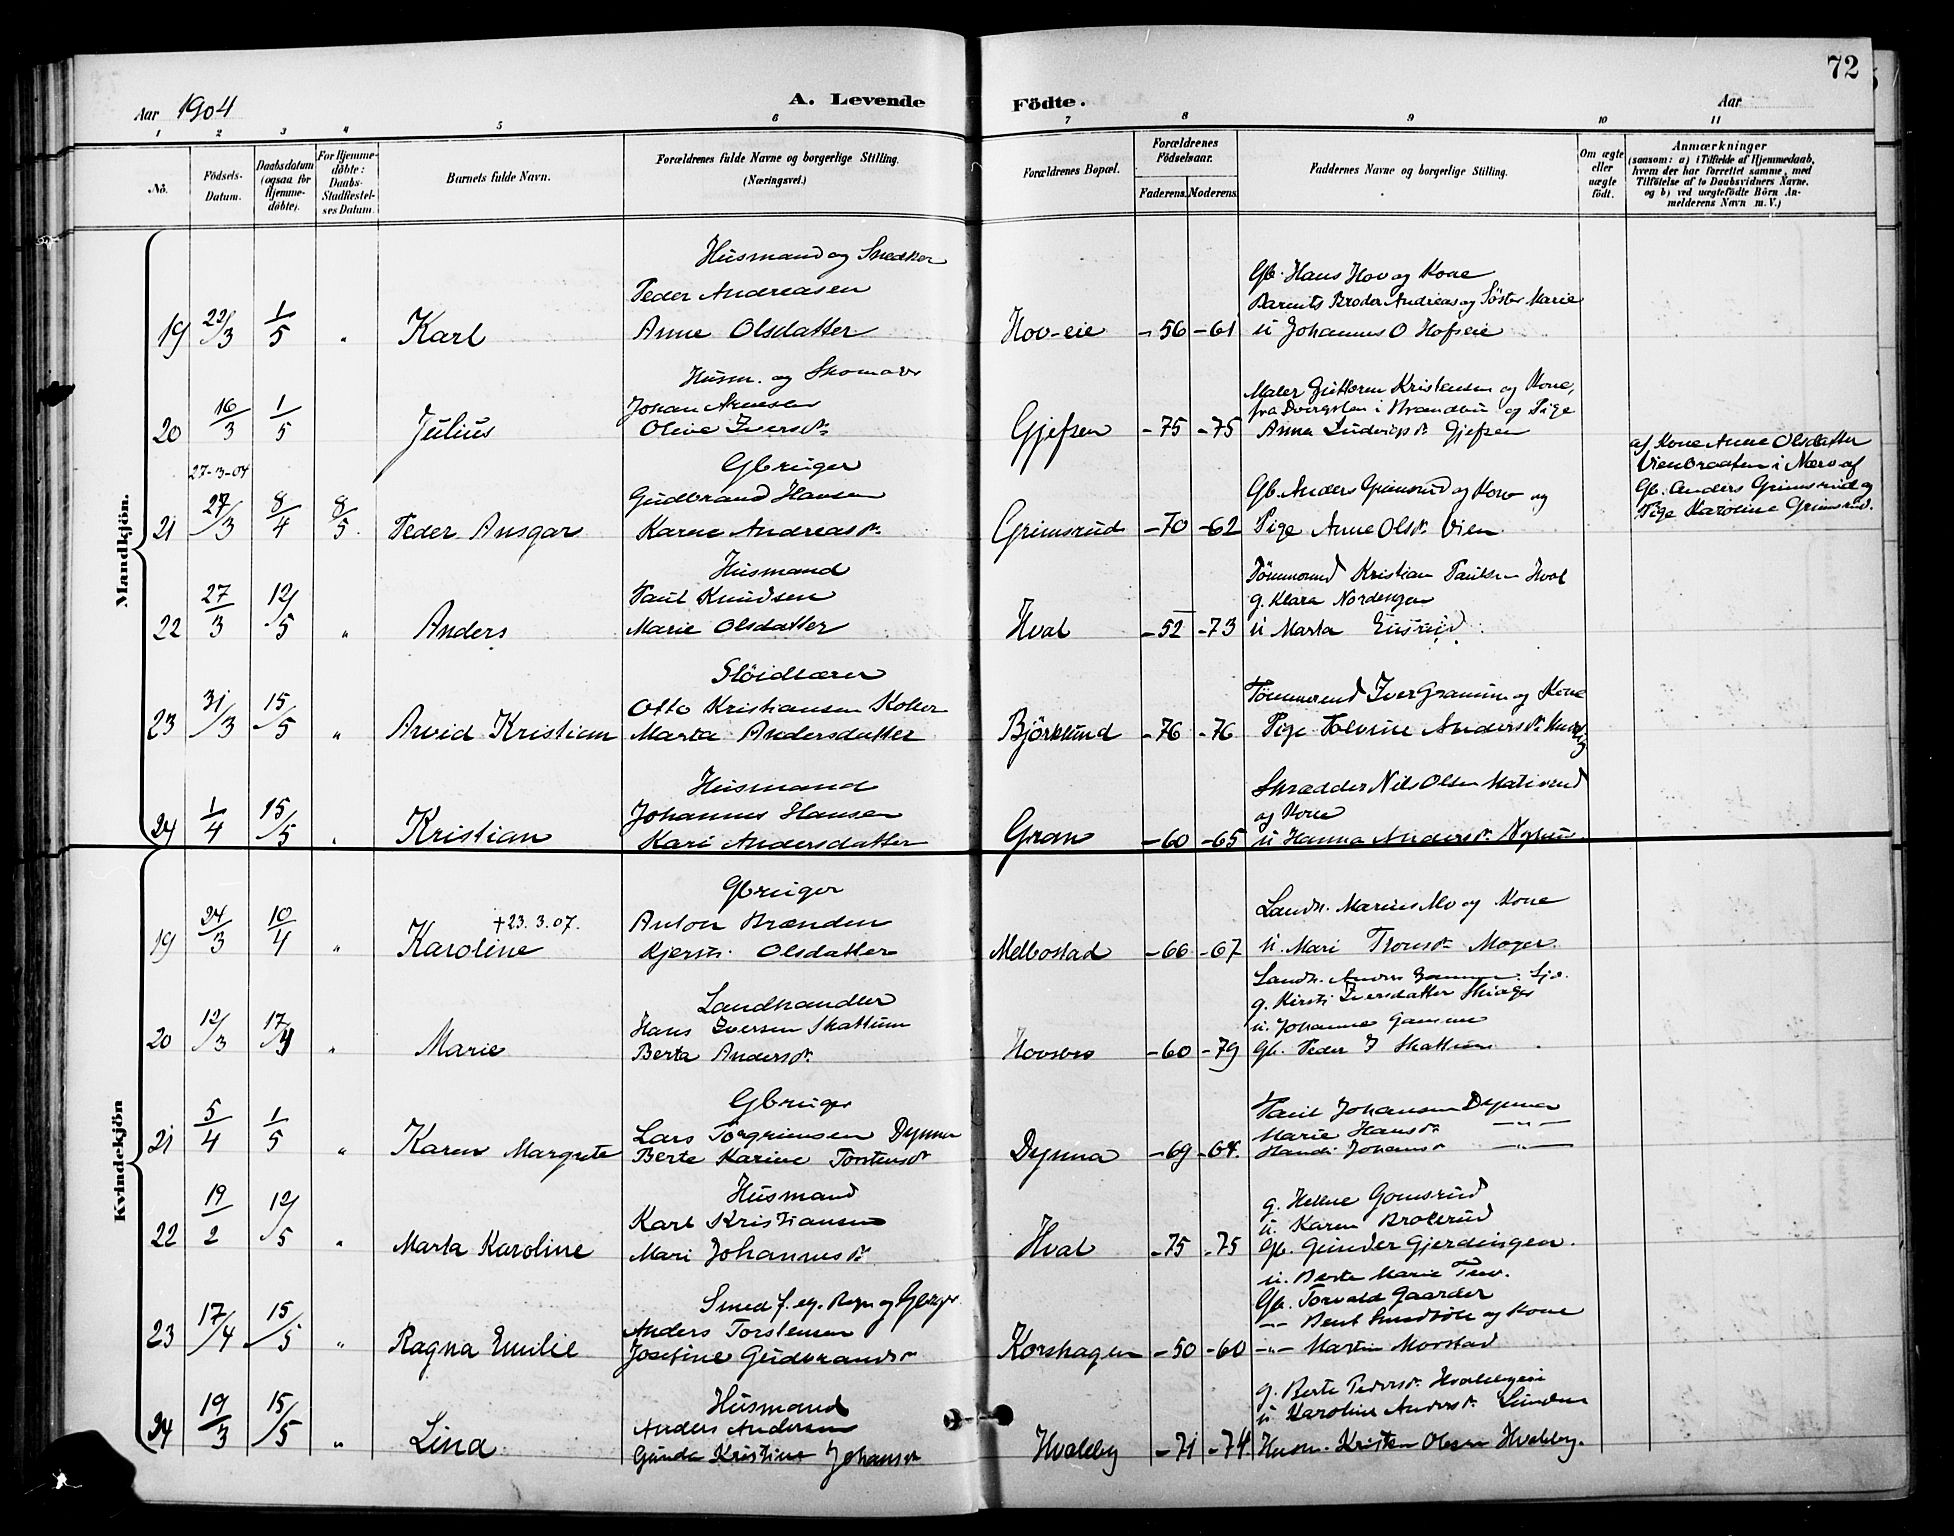 72
Aar 1904
A. Levende
Födte.
Aar
1 2 3 4 5 6 7 8 9 10 11
No.
Födsels-Datum.
Daabsdatum (ogsaa for Hjemme-döbte).
For Hjemme-döbte: Daabs-Stadfæstel-ses Datum.
Barnets fulde Navn.
Forældrenes fulde Navne og borgerlige Stilling. (Næringsvei.)
Forældrenes Bopæl.
Forældrenes Födselsaar.
Faderens. Moderens.
Faddernes Navne og borgerlige Stilling.
Om ægte eller uægte födt.
Anmærkninger
(saasom: a) i Tilfælde af Hjemmedaab, hvem der har forrettet samme, med Tilföielse af to Daabsvidners Navne, og b) ved uægtefödte Börn An-melderens Navn m. V.)
Mandkjön.
Husmand og Snedker
Peder Andreasen
Gb. Hans Hov og Kone
Barnets Broder Andreas og Söster Marie
19 22/3 1/5 " Karl Anne Olsdatter Hov-eie -56 -61 u Johannes O Hofseie
Husm. og Skomager
Johan
Maler Kristensen og Kone,
fra i Brandbu og Pige
20 16/3 1/5 Julius Olive Iversdr. Gjefsen -75 -75 Anna Gjefsen
27-3-04
Gbruger
Gudbrand Hansen
Gb. Anders Grimsrud og Kone og
21 27/3 8/4 8/5. Peder Ansgar Karen Andreasdr. Grimsrud -70 -62 Pige Anne Olsdr. Vien
af Kone Anne Olsdatter
Vienbraaten i Nærv. af
Gb. Anders Grimsrud og
Pige Karoline Grimsrud.
Husmand
Paul Knudsen
Tömmermd Kristian Paulsen Hval
g. Klara Nordengen
22 27/3 12/5 " Anders Marie Olsdatter Hval -52 -73 u Marta
Slöidlærer
Otto Kristiansen Koller
Tömmermd Iver Granum og Kone
23 31/3 15/5 " Arvid Kristian Marta Andersdatter Björklund -76 -76 Pige Andersdr.
Husmand
Johannes Hansen
Skrædder Nils Olsen
og Kone
24 1/4 15/5 " Kristian Kari Andersdatter Gran -60 -65 u Hanna Andersdr.
Kvindekjön
Gbruger
Anton Brænden
Landh. Marius Mo og Kone
† 23.3.07.
19 24/3 10/4 " Karoline Kjersti Olsdatter Melbostad -66 -67 u. Mari Moger.
Landhandler
Hans Iversen Skattum
Landh. Anders
g. Kirsti Iversdatter
u. Johanne
20 12/3 17/4 " Marie Berta Andersdr. Hovsbro -60 -79 Gb. Peder I Skattum
Gbruger
Lars Torgrimsen Dynna
Paul Johansen Dynna
Marie Hansdr. -"-
21 5/4 1/5 " Karen Margrete Berte Karine Torstensdr. Dynna -69 -64. Johansdr. -"-
Husmand
Karl Kristiansen
g. Hellene Gomsrud
u Karen Brokerud
22 19/2 12/5 " Marta Karoline Mari Johannesdr. Hval -75 -75 Gb. Gunder Gjerdingen.
u. Berte Marie
Smed f. eg. Regn og Gbruger
Anders Torstensen
Gb. Torvald Gaarder
og Kone
23 17/4 15/5 " Ragna Emilie Josefine Gudbrandsdr. Korshagen -50 -60 -"- Martin Morstad
Husmand
Anders Andersen
g. Berte Pedersdr. Hvalebyeie
u Karoline Andersdr. Lunden
24 19/3 15/5 " Lina Gunda Kristine Johansdr. Hvaleby -71 -74. Husm. Kristen Olsen Hvaleby.